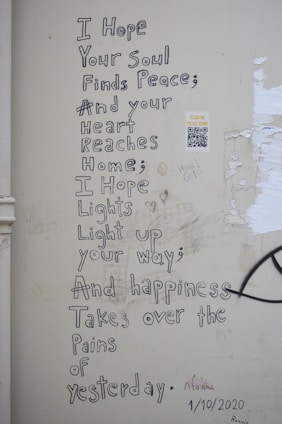 I Hope
Your Soul
Finds Peace;
And your
Heart
Reaches
Home;
I Hope
Lights
Light up
your way;
And happiness
Takes over the
Pains
of
yesterday.
1/10/2020